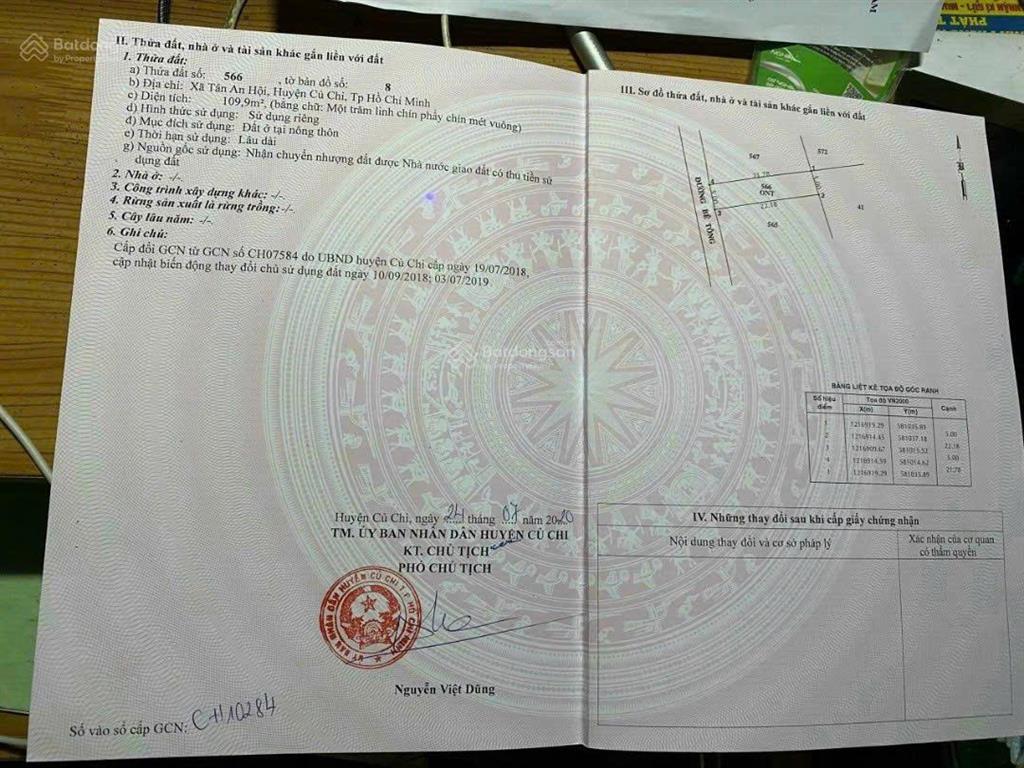 Batdongsan
by PropertyGuru
PHÁT
NHẬN KÍ GỬI
II. Thửa đất, nhà ở và tài sản khác gắn liền với đất
1. Thửa đất:
a) Thửa đất số: 566 , tờ bản đồ số: 8
b) Địa chỉ: Xã Tân An Hội, Huyện Củ Chi, Tp Hồ Chí Minh
c) Diện tích: 109,9m², (bằng chữ: Một trăm linh chín phẩy chín mét vuông)
d) Hình thức sử dụng: Sử dụng riêng
đ) Mục đích sử dụng: Đất ở tại nông thôn
e) Thời hạn sử dụng: Lâu dài
g) Nguồn gốc sử dụng: Nhận chuyển nhượng đất được Nhà nước giao đất có thu tiền sử
dụng đất
2. Nhà ở: -/-
3. Công trình xây dựng khác: -/-
4. Rừng sản xuất là rừng trồng:-/-
5. Cây lâu năm: -/-
6. Ghi chú:
Cấp đổi GCN từ GCN số CH07584 do UBND huyện Củ Chi cấp ngày 19/07/2018,
cập nhật biến động thay đổi chủ sử dụng đất ngày 10/09/2018; 03/07/2019
Huyện Củ Chi, ngày 24 tháng 07 năm 2020
TM. ỦY BAN NHÂN DÂN HUYỆN CỦ CHI
KT. CHỦ TỊCH
PHÓ CHỦ TỊCH
ỦY BAN NHÂN DÂN HUYỆN CỦ CHI T.P HỒ CHÍ MINH
Nguyễn Việt Dũng
Số vào sổ cấp GCN: CH10284
III. Sơ đồ thửa đất, nhà ở và tài sản khác gắn liền với đất
567
572
1
4
21.78
5.00
566
ONT
5.00
2
3
22.18
41
565
ĐƯỜNG BÊ TÔNG
Batdongsan
BẢNG LIỆT KÊ TỌA ĐỘ GÓC RANH
Số hiệu điểm Tọa độ VN2000 Cạnh
X(m) Y(m)
1 1216919.29 581035.89
5.00
2 1216914.45 581037.18
22.18
3 1216909.67
5.00
4 1216914.59 581014.62
21.78
1 1216919.29 581035.89
IV. Những thay đổi sau khi cấp giấy chứng nhận
Nội dung thay đổi và cơ sở pháp lý Xác nhận của cơ quan
có thẩm quyền